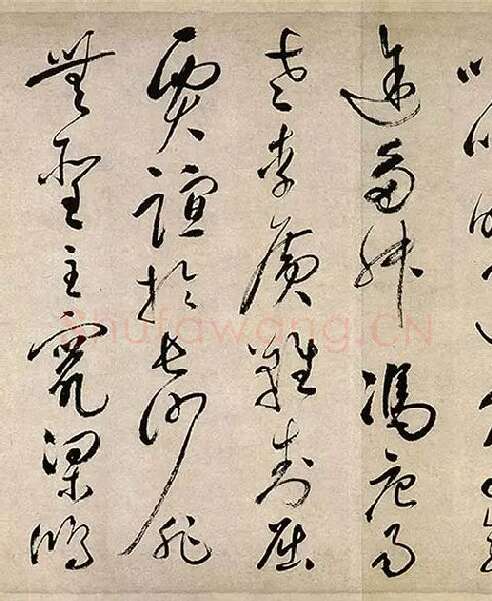 途多舛馮唐易
老李廣難封屈
賈誼於長沙非
無聖主竄梁鴻
Shufawang.CN